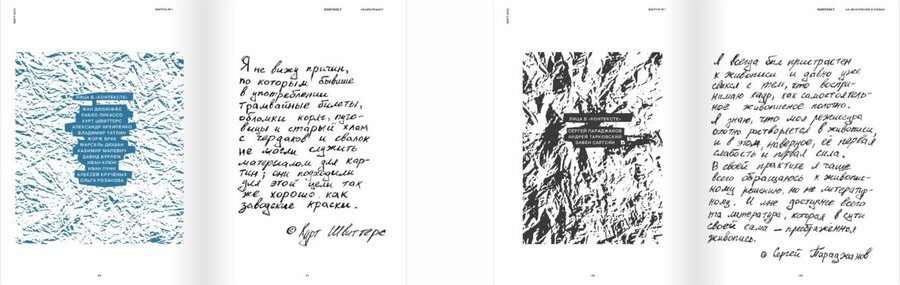 МАРТ 2015
ВЫПУСК №1
КОНТЕКСТ
ЛИЦА В «КОНТЕКСТЕ»
ЖАН ДЮБЮФФЕ
ПАБЛО ПИКАССО
КУРТ ШВИТТЕРС
АЛЕКСАНДР АРХИПЕНКО
ВЛАДИМИР ТАТЛИН
ЖОРЖ БРАК
МАРСЕЛЬ ДЮШАН
КАЗИМИР МАЛЕВИЧ
ДАВИД БУРЛЮК
ИВАН КЛЮН
ИВАН ПУНИ
АЛЕКСЕЙ КРУЧЁНЫХ
ОЛЬГА РОЗАНОВА
Я не вижу причин,
по которым бывшие
в употреблении
трамвайные билеты,
обломки коряг, пуго-
вицы и старый хлам
с чердаков и свалок
не могли служить
материалом для кар-
тин; они подходили
для этой цели так
же, хорошо, как
заводские краски.
© Курт Швиттерс
МАРТ 2015
ВЫПУСК №1
КОНТЕКСТ
НА ЭКСКУРСИЮ И
ЛИЦА В «КОНТЕКСТЕ»
СЕРГЕЙ ПАРАДЖАНОВ
АНДРЕЙ ТАРКОВСКИЙ
ЗАВЕН САРГСЯН
Я всегда был пристрастен
к живописи и давно уже
свыкся с тем, что воспри-
нимаю кадр, как самостоятель-
ное живописное полотно.
Я знаю, что моя режиссура
охотно растворяется в живописи,
и в этом, наверное, её первая
слабость и первая сила.
В своей практике я чаще
всего обращаюсь к живопис-
ному решению, но не литератур-
ному. И мне доступнее всего
та литература, которая в сути
своей сама – преображённая
живопись.
© Сергей Параджанов